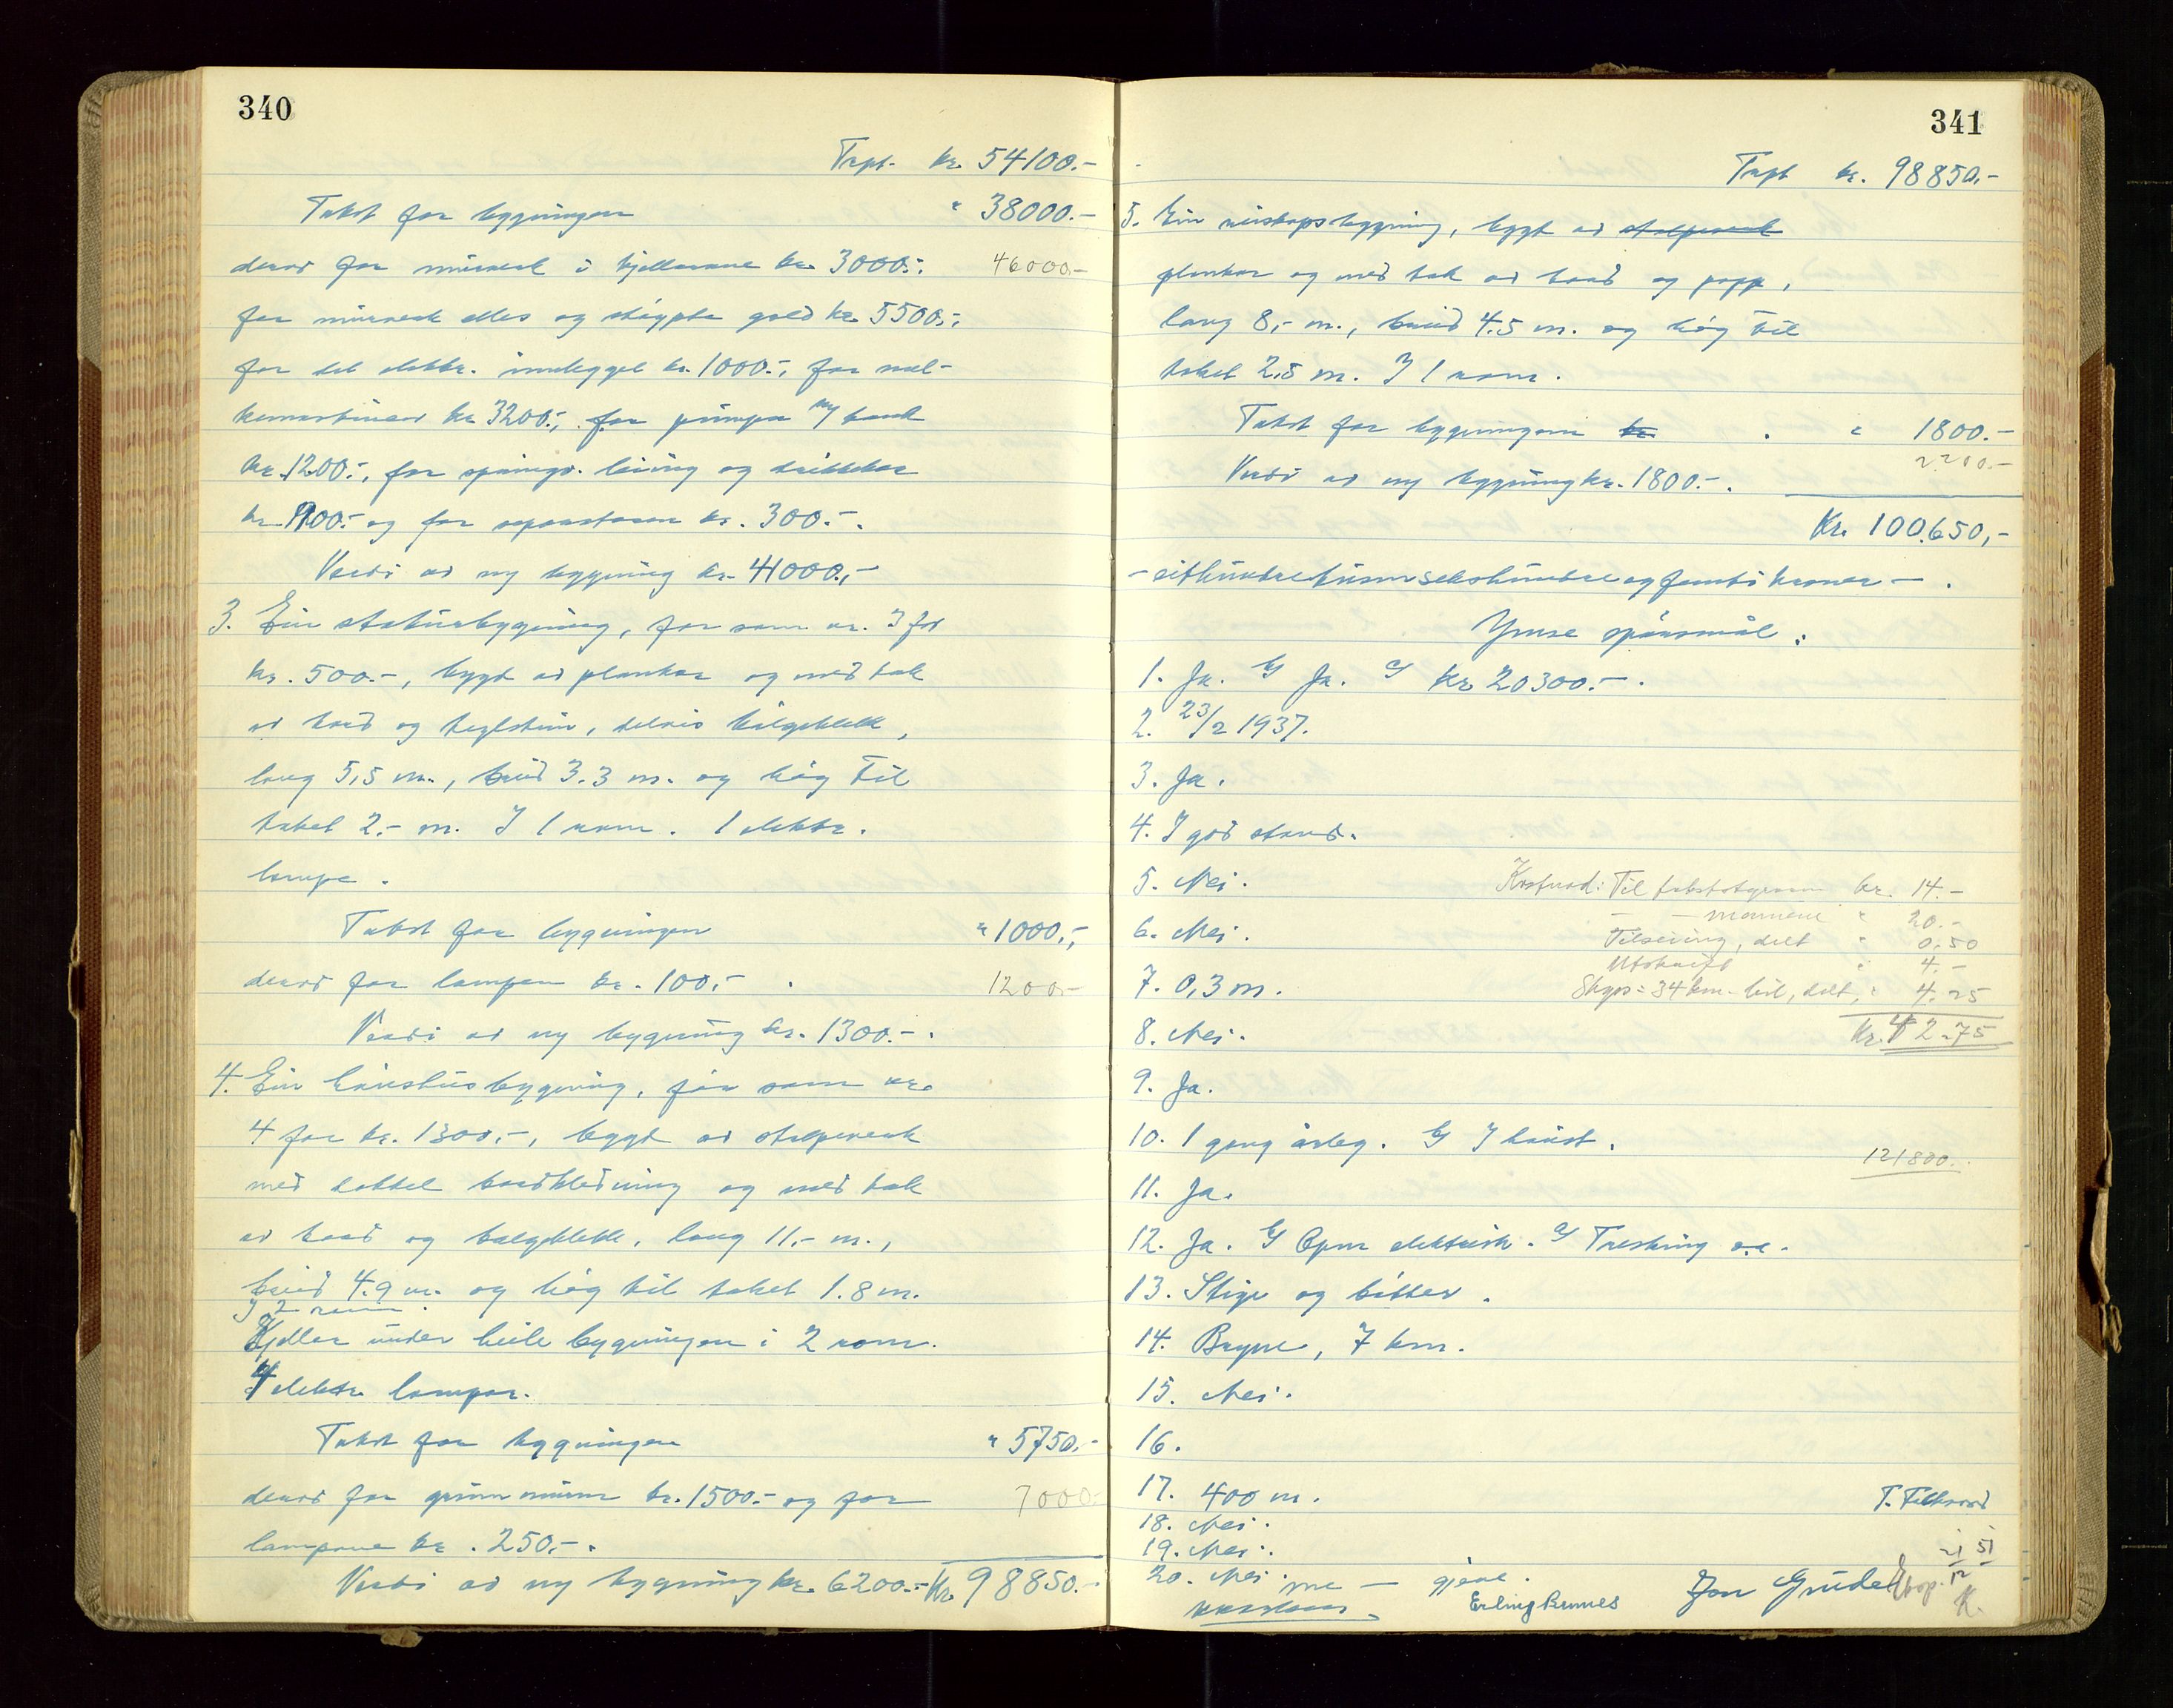 340
Trpt. kr. 54100.-
Takst for bygningen " 38000.-
derav for murverk i kjellarane kr. 3000.-, 46000.-
for murverk elles og støypte golv kr. 5500.-,
for det elektr. innlegget kr. 1000.-, for mel-
kemaskiner kr. 3200.-, for pumpa og tank
kr. 1200.-, for springv. leiing og drikkekar
kr. 1100.- og for separatoren kr. 300.-.
Verdi av ny bygning kr. 41000.-
3. Ein bygning, før som nr. 3 for
kr. 500.-, bygt av plankar og med tak
av bord og teglstein, delvis bølgeblekk,
lang 5,5 m., breid 3.3 m. og høg til
taket 2.- m. I 1 rom. 1 elektr.
lampe.
Takst for bygningen " 1000.-,
derav for lampen kr. 100.- . 1200.-
Verdi av ny bygning kr. 1300.-.
4. Ein hønehusbygning, før som nr.
4 for kr. 1300.-, bygt av stolpeverk
med dobbel bordkledning og med tak
av bord og bølgeblekk, lang 11.- m.,
breid 4.9 m. og høg til taket 1.8 m.
I 2 rom.
Kjellar under heile bygningen i 2 rom.
4 elektr. lampar.
Takst for bygningen " 5750.-
derav for grunnmurar kr. 1500.- og for 7000.-
lampene kr. 250.-.
Verdi av ny bygning kr. 6200.- Kr. 98850.-
341
Trpt kr. 98850.-
5. Ein reiskapsbygning, bygt av stolpeverk
plankar og med tak av bord og papp,
lang 8,- m., breid 4.5 m. og høg til
taket 2.5 m. I 1 rom.
Takst for bygningen kr. " 1800.-
2200.-
Verdi av ny bygning kr. 1800.-.
Kr. 100.650,-
- eitthundretusensekshundre og femti kroner - .
Ymse spørsmål:
1. Ja. b) Ja. c) kr. 20300.-.
2. 23/2 1937.
3. Ja.
4. I god stand.
5. Nei.
Kostnad: Til takstutgreiar kr. 14.-
6. Nei.
- - mennene " 20.-
Tilseiing, delt " 0.50
Utskrift " 4.-
7. 0,3 m.
Skyss: 34 km. bil, delt, " 4.25
8. Nei.
Kr. 42.75
9. Ja.
10. 1 gang årleg. b) I haust.
121800.-
11. Ja.
12. Ja. b) Open elektrisk. c) Tresking o.a.
13. Stige og bøtter.
14. Bryne, 7 km.
15. Nei.
16.
17. 400 m.
18. Nei.
19. Nei.
20. Nei.
Erling Rennes
Jon Grude